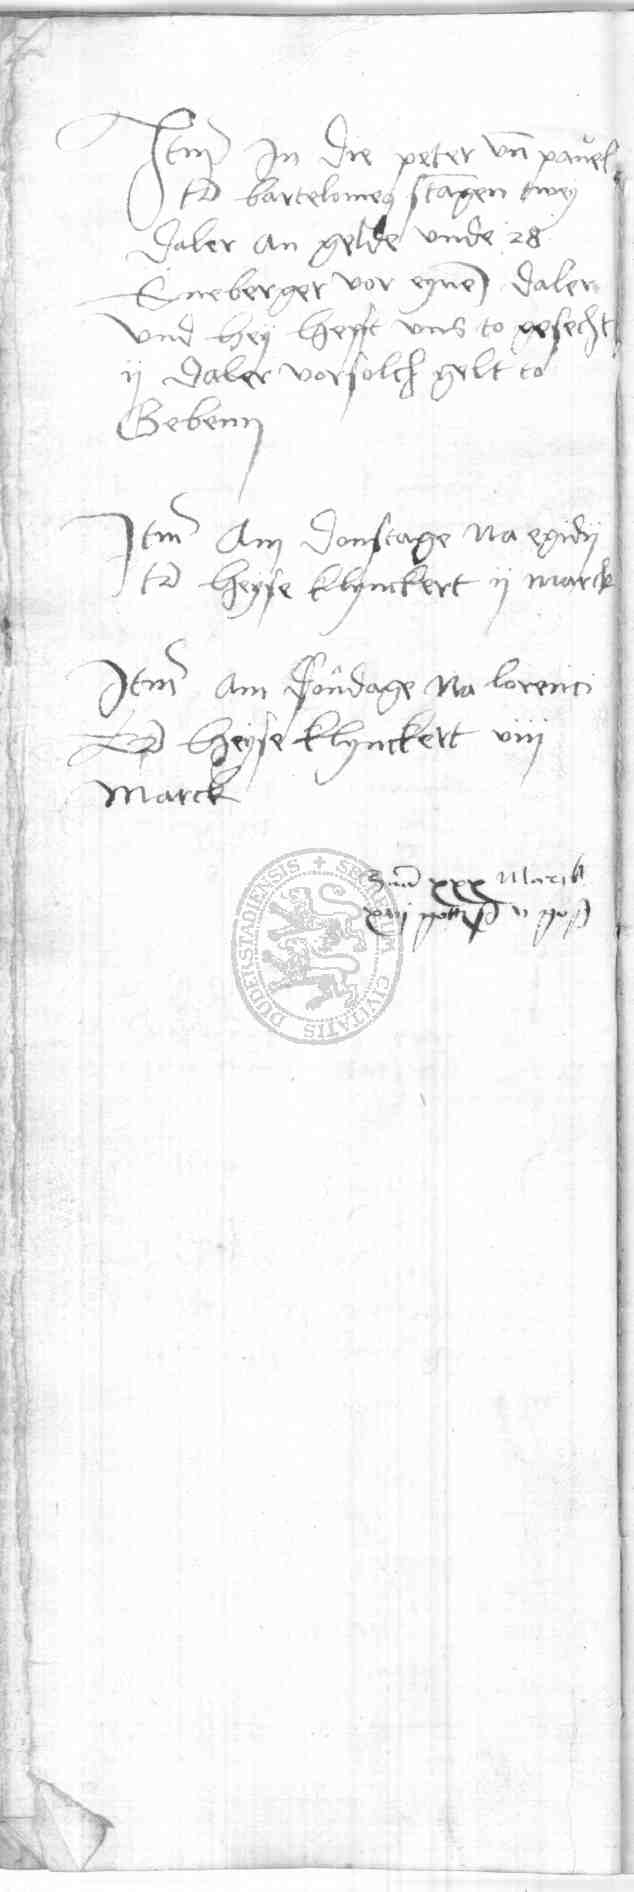 Itm In die peter vn pauel
td bartelomeg stagen twey
daler an gelde vnde 28
Sneberger vor eyne daler
vnd hey hefft vns to gesecht
ij daler vor solch gelt to
Gebenn
Itm Am donstage Na egidij
td heyse klynckert ij marck
Itm Am Sondage Na lorenci
td heyse klynckert viij
Marck
xxx Marck
SECRETUM CIVITATIS DUDERSTADIENSIS